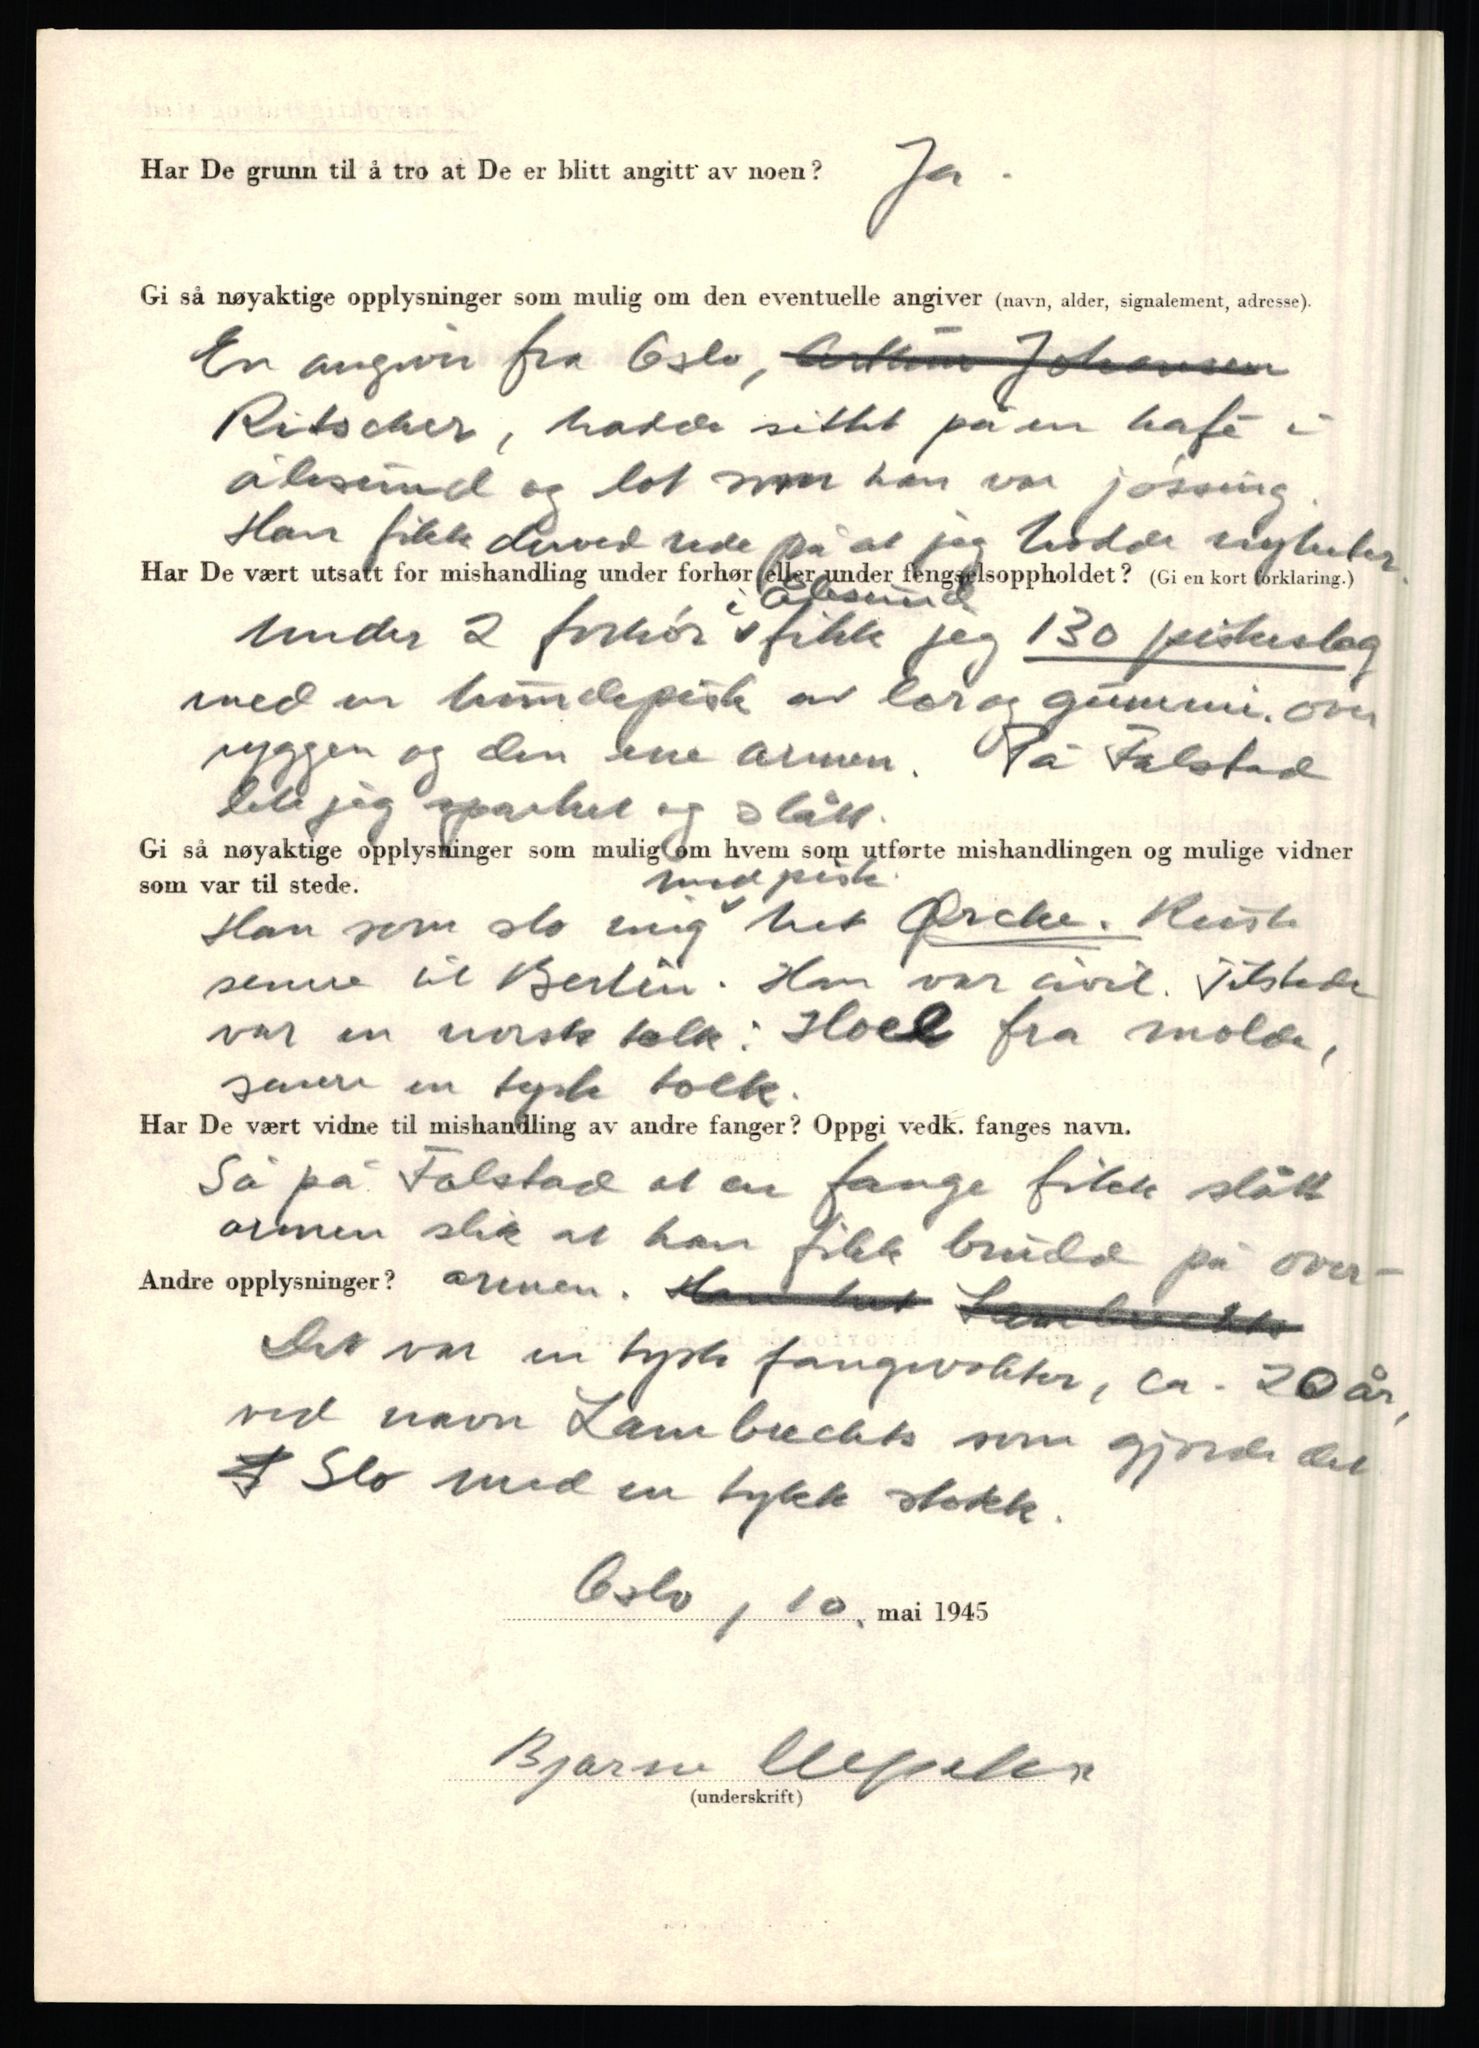 Har De grunn til å tro at De er blitt angitt av noen? Ja.
Gi så nøyaktige opplysninger som mulig om den eventuelle angiver (navn, alder, signalement, adresse).
En angiver fra Oslo, Arthur Johansen
Ritscher, hadde sittet på en kafé i
Ålesund og lot som han var jøssing.
Han fikk derved rede på at jeg hadde nyheter.
Har De vært utsatt for mishandling under forhør eller under fengselsoppholdet? (Gi en kort forklaring.)
i Ålesund
Under 2 forhør fikk jeg 130 piskeslag
med en hundepisk av lær og gummi. over
ryggen og den ene armen. På Falstad
ble jeg sparket og slått.
Gi så nøyaktige opplysninger som mulig om hvem som utførte mishandlingen og mulige vidner
som var til stede.
med pisk
Han som slo mig het Ørcke. Reiste
senere til Berlin. Han var civil. Tilstede
var en norsk tolk: Hoel fra Molde,
senere en tysk tolk.
Har De vært vidne til mishandling av andre fanger? Oppgi vedk. fanges navn.
Så på Falstad at en fange fikk slått
armen slik at han fikk brudd på over-
Andre opplysninger? armen. Han het Lambrechts
Det var en tysk fangevokter, ca. 20 år,
ved navn Lambrechts som gjorde det
Slo med en tykk stokk.
Oslo, 10. mai 1945
Bjarne
(underskrift)